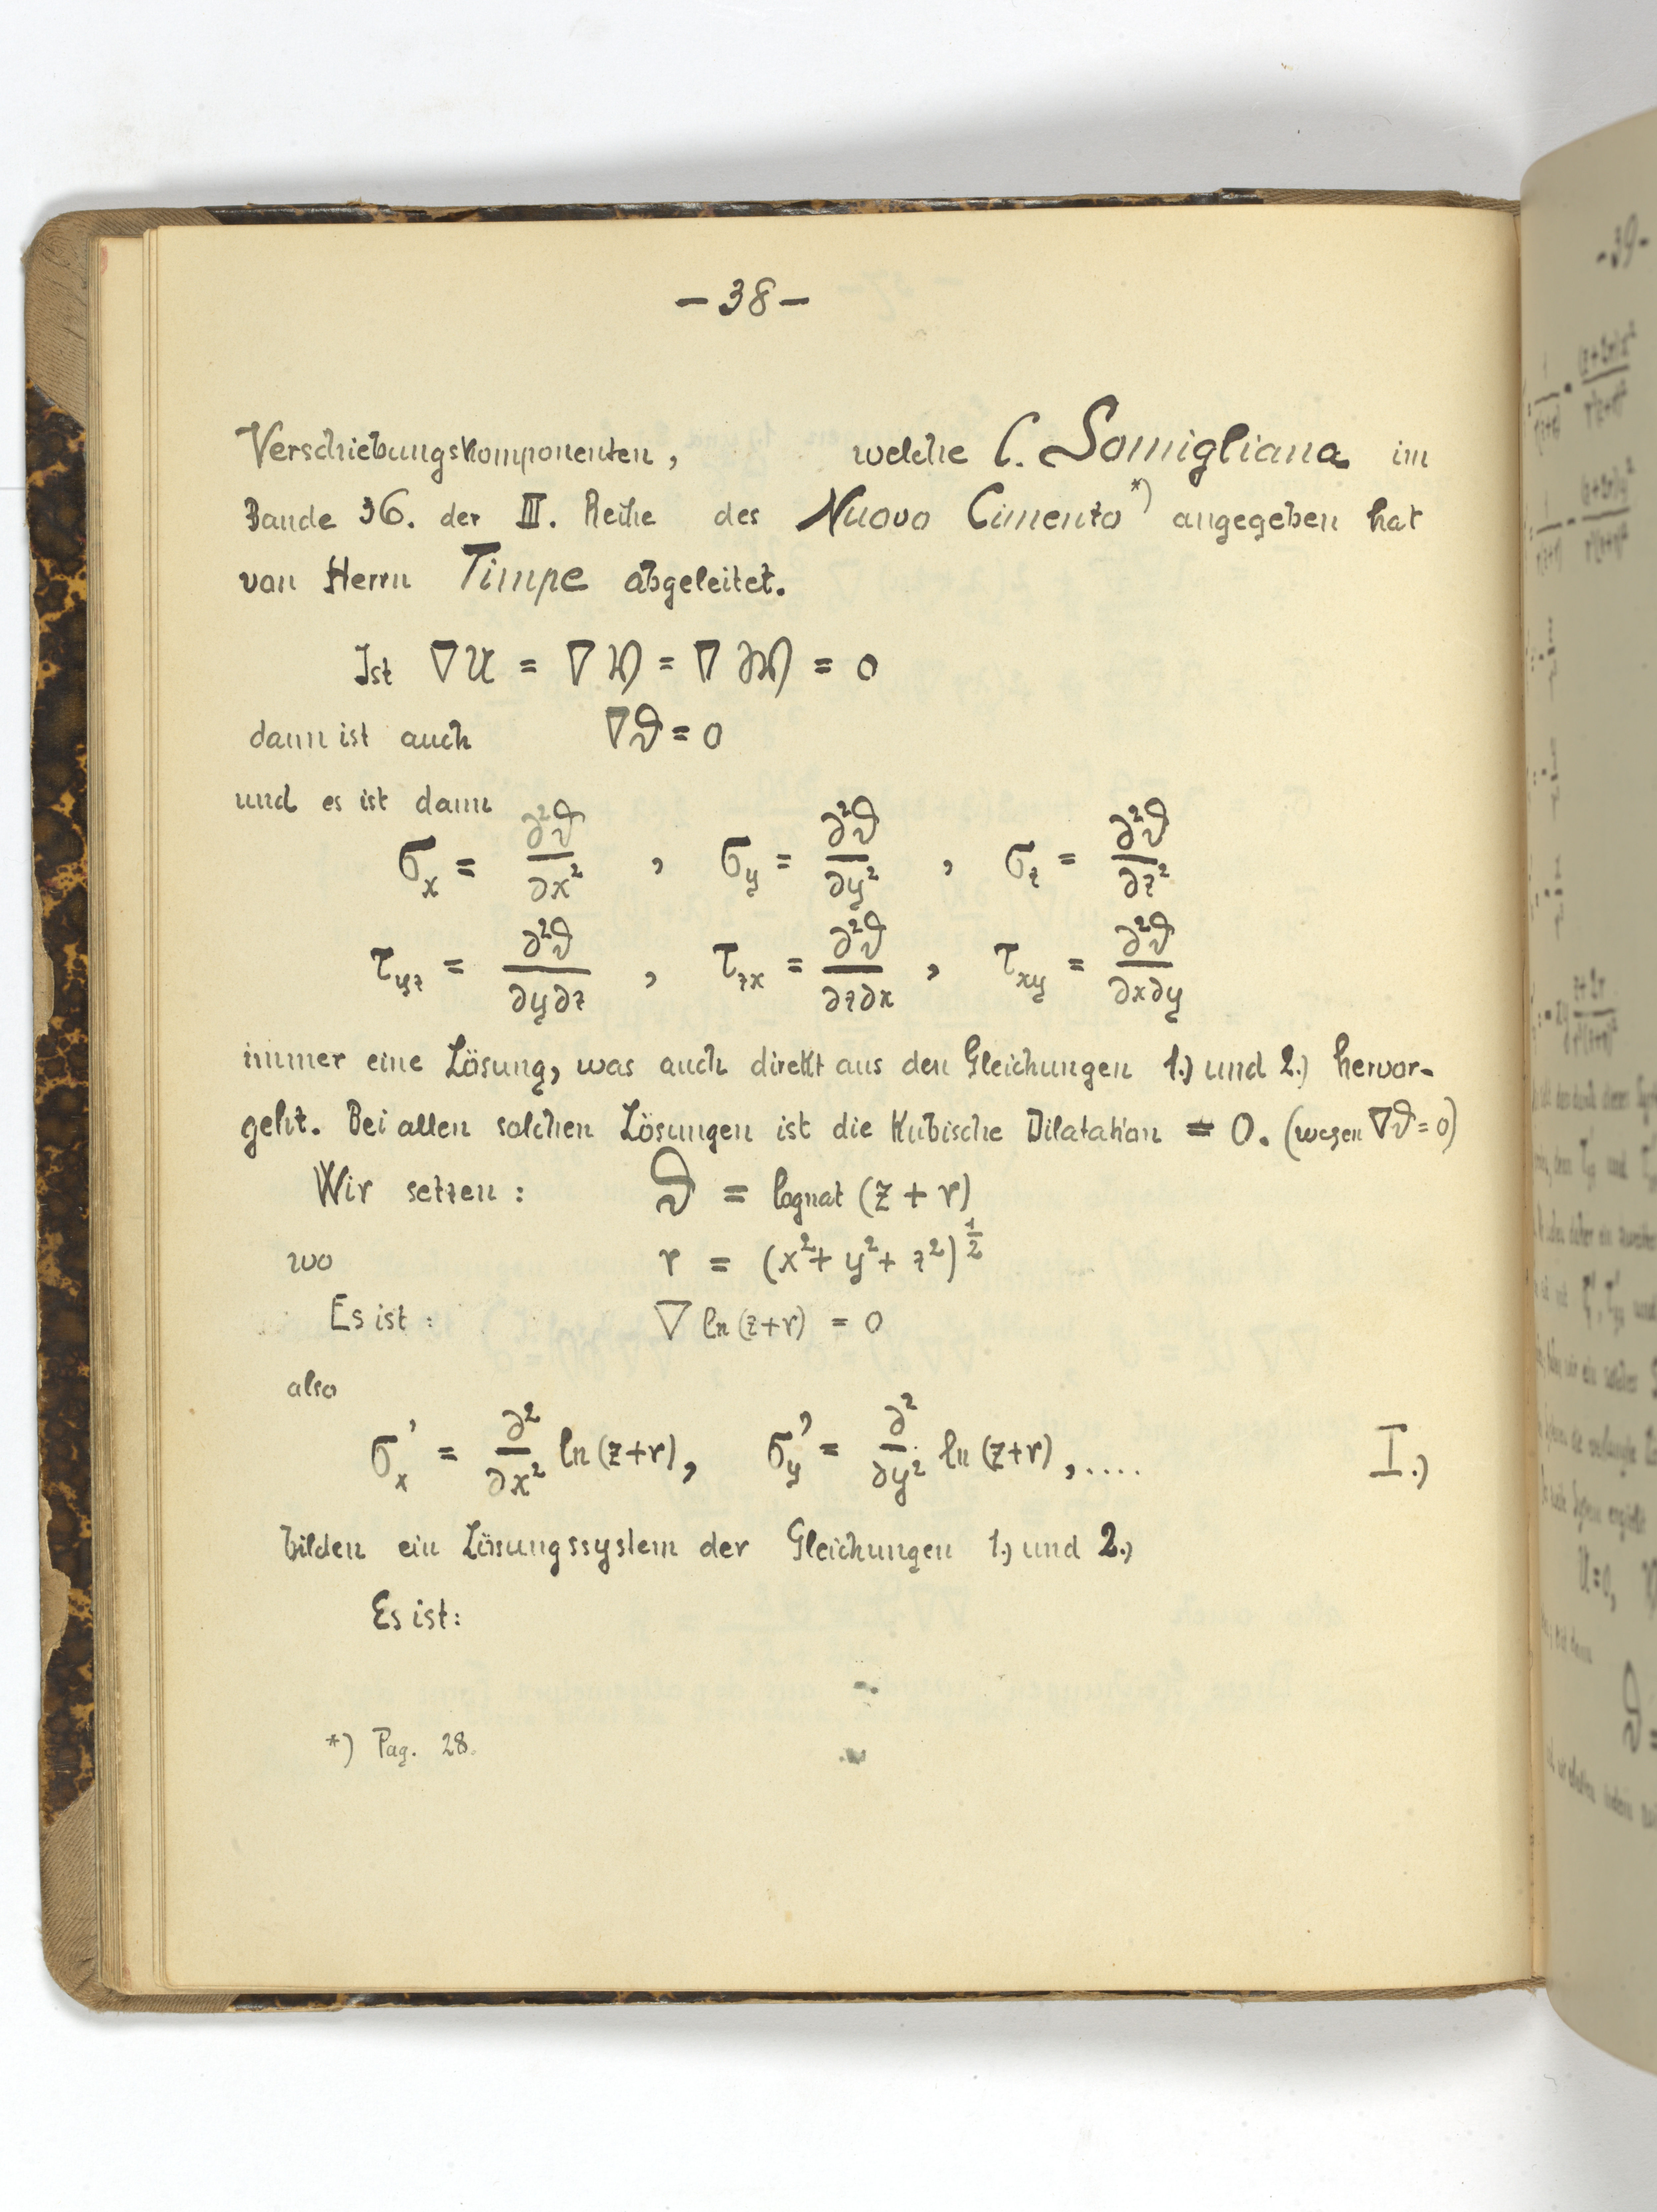 -38-
Verschiebungskomponenten, welche C. Somigliana im
Bande 36. der III. Reihe des Nuovo Cimento*) angegeben hat
von Herrn Timpe abgeleitet.
Ist ∇U = ∇V = ∇W = 0
dann ist auch ∇ϑ = 0
und es ist dann
σ_x = ∂²ϑ/∂x² , σ_y = ∂²ϑ/∂y² , σ_z = ∂²ϑ/∂z²
τ_yz = ∂²ϑ/∂y∂z , τ_zx = ∂²ϑ/∂z∂x , τ_xy = ∂²ϑ/∂x∂y
immer eine Lösung, was auch direkt aus den Gleichungen 1.) und 2.) hervor-
geht. Bei allen solchen Lösungen ist die Kubische Dilatation = 0. (wegen ∇ϑ = 0)
Wir setzen: ϑ = lognat (z + r)
wo r = (x² + y² + z²)^½
Es ist: ∇ ln (z+r) = 0
also
σ_x' = ∂²/∂x² ln (z+r), σ_y' = ∂²/∂y² ln (z+r), .... I.)
bilden ein Lösungssystem der Gleichungen 1.) und 2.)
Es ist:
*) Pag. 28.